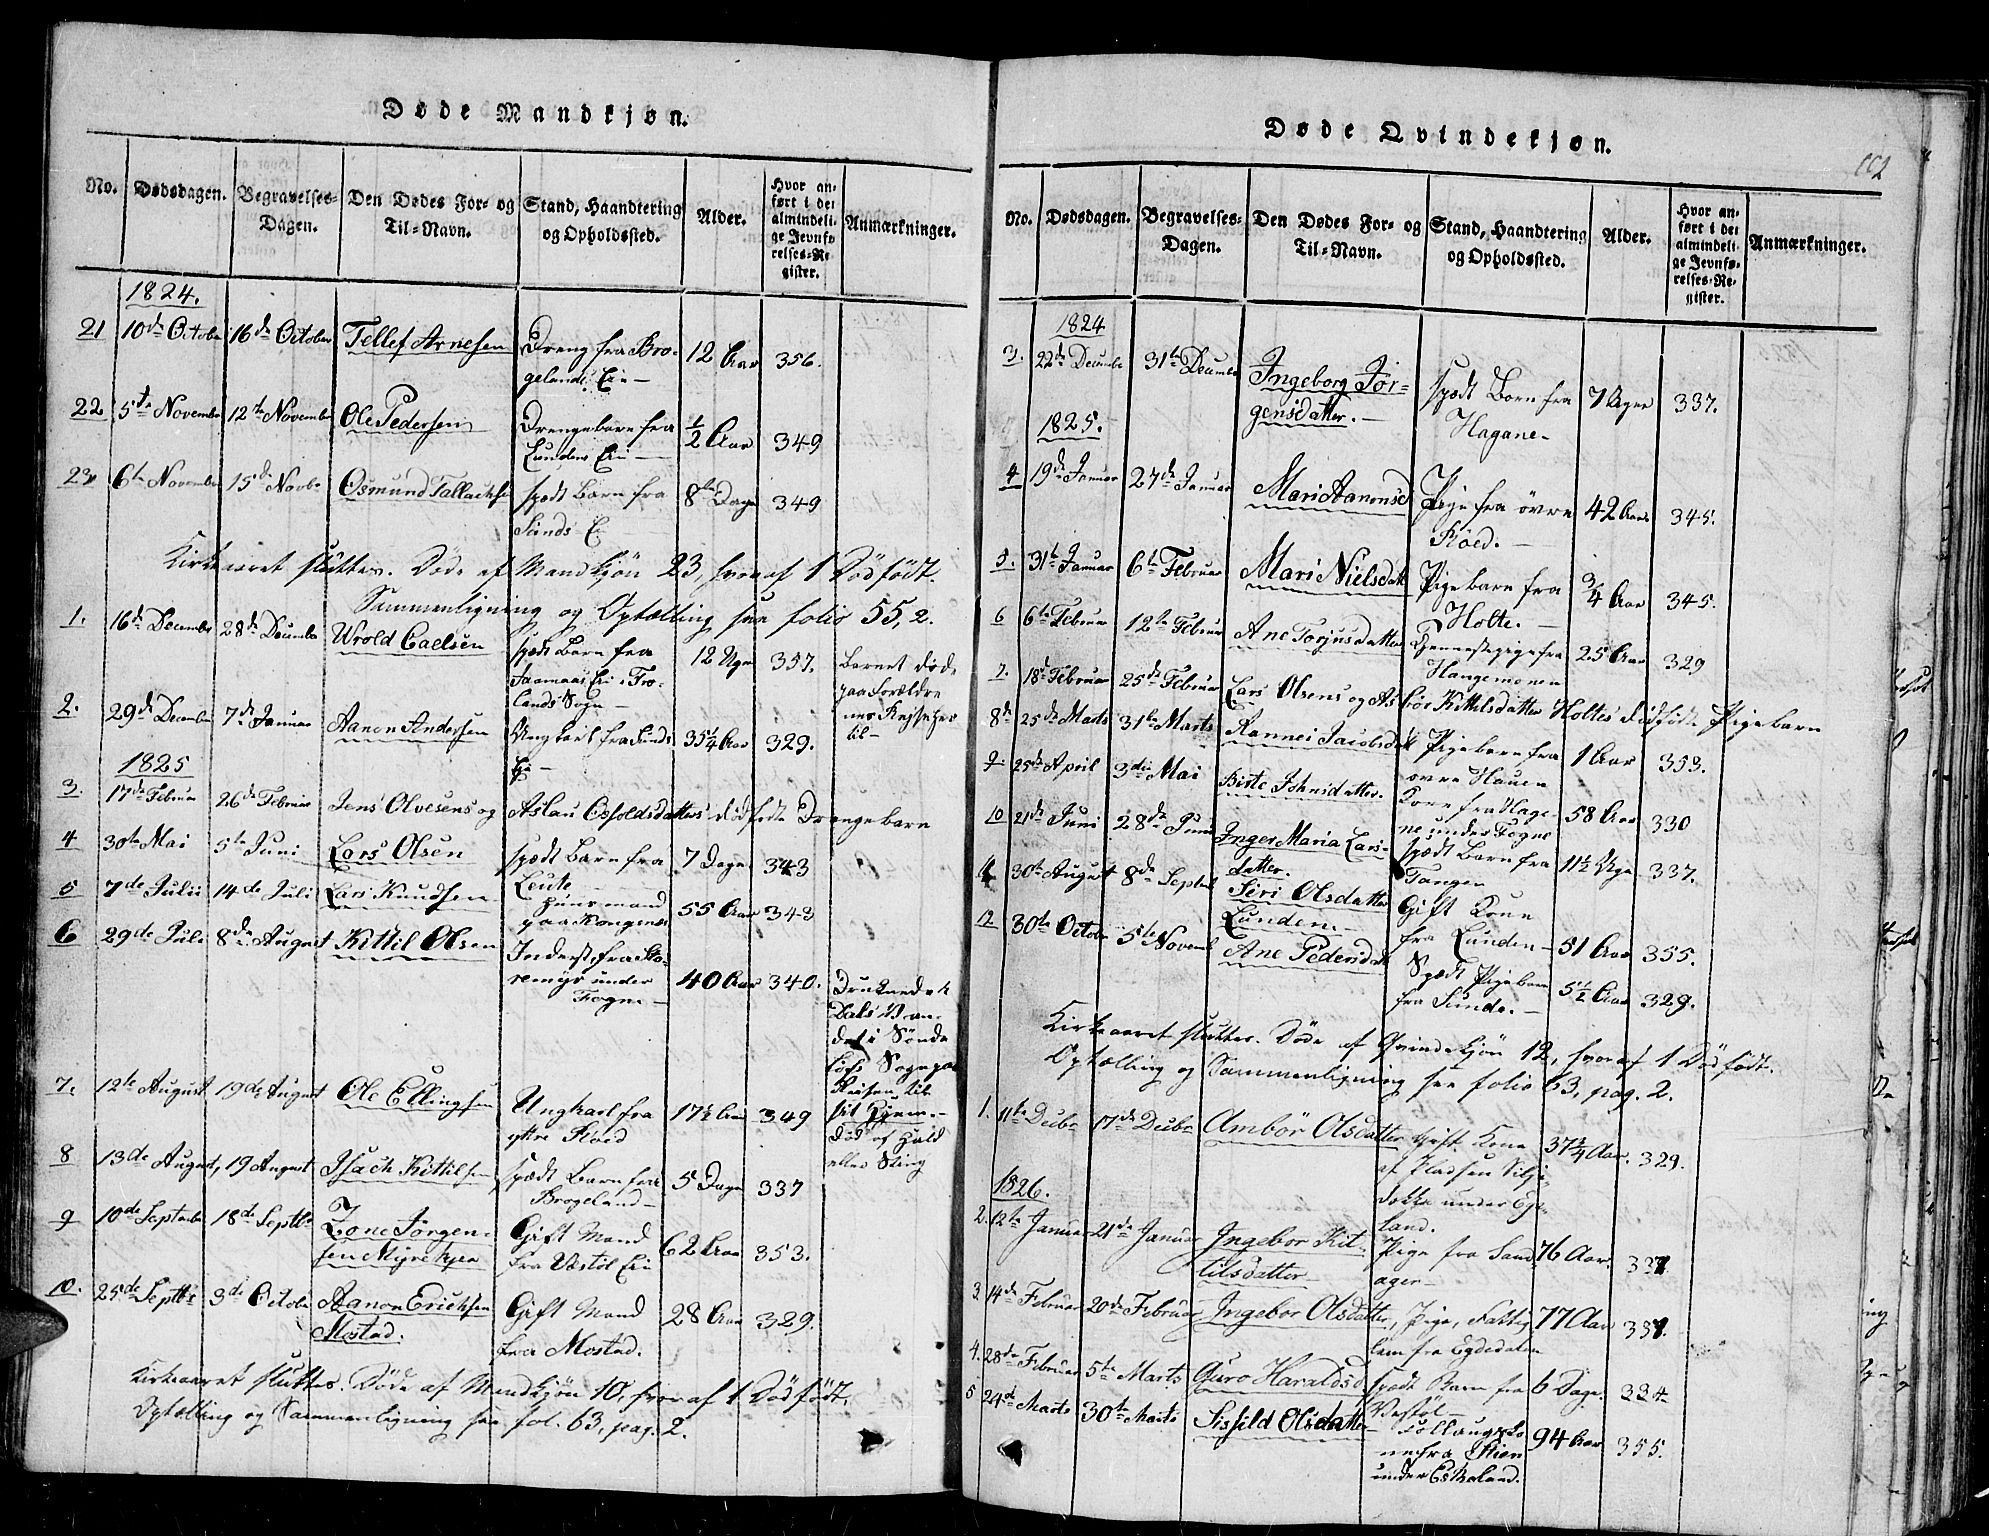 Døde Mandkjøn.
No. Dødsdagen. Begravelses-Dagen. Den Dødes For- og Til-Navn. Stand, Haandtering og Opholdssted. Alder. Hvor anført i det almindelige Jevnførelses-Register. Anmærkninger.
1824.
21 10de October 16de October Tellef Arnesen Dreng fra Bro-
gelands Eie 12 Aar 356.
22 5te November 12te November Ole Pedersen Drengebarn fra
Lundens Eie 1/2 Aar 349
23 6te November 15de Novbr Osmund Tallachsen spædt Barn fra
Sunds E 8te Dage 349
Kirkeaaret sluttes. Døde af Mandkjön 23, hvoraf 1 Dödfödt.
Sammenligning og Optælling see folio 55, 2.
1. 16de December 28de December Wrold Caelsen spædt Barn fra
Eie i Fro-
lands Sogn 12 Uger 357. Barnet døde
paa Forældre
nes Rejse her
til
2. 29de December 7de Januar Aanon Andersen Ungkarl fra Sunds
Eie 35 1/4 Aar 329.
1825
3. 17de Februar 26de Februar Jens Olvesens og Aslau Osfoldsdatters dødfødte Drengebarn
4 30te Mai 5te Juni Lars Olsen spædt Barn fra
Leute 7 Dage 343
5 7de Julii 14de Juli Lars Knudsen Huusmand
paa Kongenes 55 Aar 343
6 29de Juli 8de August Kittil Olsen Inderst fra Sto-
remyr under
Fogne 40 Aar 340. Druknede i
Dals Van-
det i Sönde
löfs Sogn paa
Reisen til
sit Hjem.
7. 12te August 19de August Ole Ellingsen Ungkarl fra
ytre Röed 17 1/2 Aar 349 död af Hold
eller Sting
8 13de August, 19 August Isach Kittilsen spædt Barn fra
Brogeland 5 Dage 337
9 10de September 18de Septbr Zone Jørgen-
sen Gift Mand
fra Væstöl Eie 62 Aar 353.
10. 25de Septbr 3de October Aanon Ericksen
Mostad. Gift Mand
fra Mostad. 28 Aar 329.
Kirkeaaret sluttes. Døde af Mandkjön 10, hvoraf 1 Dödfödt,
Optælling og Sammenligning see fol. 63, pag. 2.
Døde Qvindekjøn.
112
No. Dødsdagen. Begravelses-Dagen. Den Dødes For- og Til-Navn. Stand, Haandtering og Opholdssted. Alder. Hvor anført i det almindelige Jevnførelses-Register. Anmærkninger.
1824
3. 22de December 31te December Ingeborg Jör-
gensdatter. spædt Barn fra
Hagane 7 Uger 337.
1825.
4 19de Januar 27de Januar Mari Aanonsd Pige fra övre
Röed. 42 Aar 345.
5. 31te Januar 6te Februar Mari Nielsdatt Pigebarn fra
Holte. 3/4 Aar 345.
6 6te Februar 12te Februar Ane Torjusdatter Tjenestepige fra
Hangemonen 25 Aar 329
7. 18de Februar 25de Februar Lars Olsens og Asbör Kittelsdatter Holtes dödfödte Pigebarn
8de 25de Marts 31te Marts Rannei Jacobsdatt Pigebarn fra
övre Hauen 1 Aar 353.
9. 25de April 3die Mai Birte Johnsdatter. Kone fra Hage-
ne under Fogne 58 Aar 330
10 21de Juni 28de Juni Inger Maria Lars-
datter. spædt Barn fra
Tangen 11 1/2 Uge 337.
11 30te August 8de Septbr Siri Olsdatter
Lunden. Gift Kone
fra Lunden 51 Aar 355.
12 30te October 5te Novemb Ane Pedersdatt Spædt Pigebarn
fra Sunde. 5 1/2 Aar 329.
Kirkeaaret sluttes. Döde af Qvindekjön 12, hvoraf 1 Dödfödt.
Optælling og Sammenligning see folio 63, pag. 2.
1. 11te Decbr 17de Decbr Ambör Olsdatter Gift Kone
af Pladsen Silje
dokka under Egde
land. 37 1/4 Aar. 329.
1826.
2. 12te Januar 21de Januar Ingebor Kit-
tilsdatter Pige fra Sand
ager 76 Aar 337
3. 14de Februar 20de Februar Ingebor Olsdatter, Pige, Fattig
lem fra Egdedalen 77 Aar 331.
4. 28de Februar 5te Marts Auro Haraldsd spædt Barn fra
Vestöl 6 Dage. 334
5 24de Marts 30te Marts Sissild Olsdatter Follaugsko
ne fra Stien
under Eskeland. 94 Aar 355.